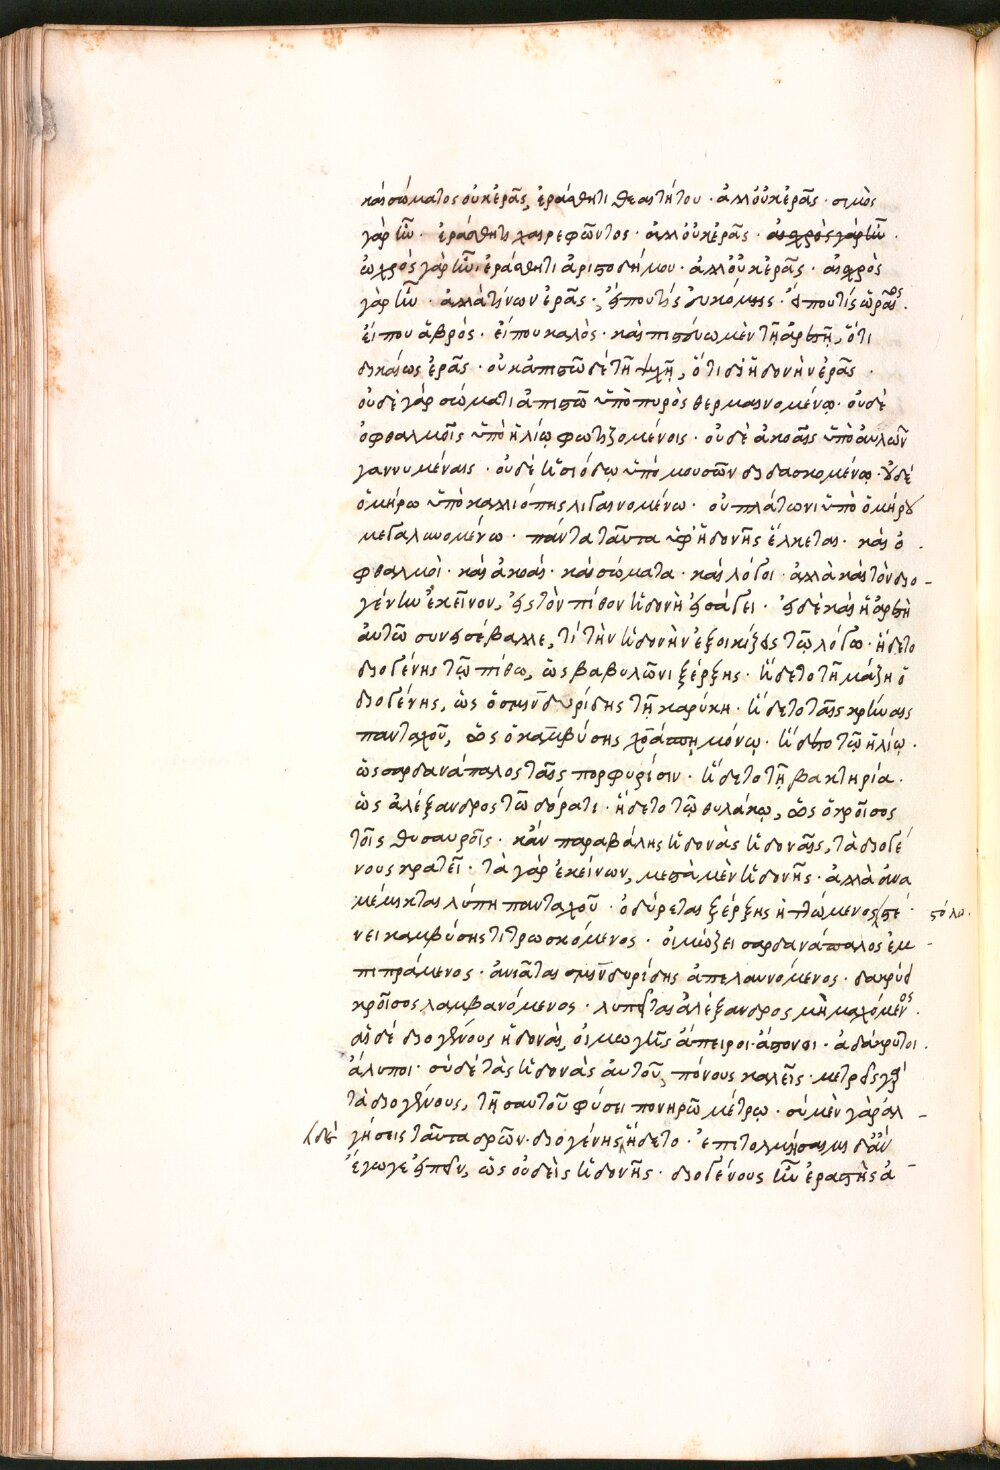 καὶ σώματος οὐκ ἐρᾷς, ἐράσθητι θεαιτήτου · ἀλλ οὐκ ἐρᾷς · σιμὸς
γὰρ ἦν · ἐράσθητι χαιρεφῶντος · ἀλλ οὐκ ἐρᾷς · αἰσχρὸς γὰρ ἦν ·
ὠχρὸς γὰρ ἦν · ἐράσθητι ἀριστοδήμου · ἀλλ οὐκ ἐρᾷς · αἰσχρὸς
γὰρ ἦν · ἀλλὰ τίνων ἐρᾷς · εἴ που τίς εὐκόμης · εἴ που τίς ὡραῖος ·
εἴ που ἁβρὸς · εἴ που καλὸς · καὶ πιστεύω μὲν τῇ ἀρετῇ, ὅτι
δικαίως ἐρᾷς · οὐκ ἀπιστῶ δὲ τῇ ψυχῇ, ὅτι δι ἡδονὴν ἐρᾷς ·
οὐδὲ γὰρ σώματι ἀπιστῶ ὑπὸ πυρὸς θερμαινομένῳ · οὐδὲ
ὀφθαλμοῖς ὑπὸ ἡλίῳ φωτιζομένοις · οὐδὲ ἀκοαῖς ὑπὸ αὐλῶν
γαννυμέναις · οὐδὲ ἡσιόδῳ ὑπὸ μουσῶν διδασκομένῳ · οὐδὲ
ὁμήρω ὑπὸ καλλιόπης λιγαινομένω · οὐ πλάτωνι ὑπὸ ὁμήρου
μεγαλυνομένω · πάντα ταῦτα ὑφ ἡδονῆς ἕλκεται · καὶ ὀ
φθαλμοὶ · καὶ ἀκοαὶ · καὶ σώματα · καὶ λόγοι · ἀλλὰ καὶ τὸν διο-
γένην ἐκεῖνον, εἰς τὸν πίθον ἡδονὴ εἰσάγει · εἰ δὲ καὶ ἡ ἀρετὴ
αὐτῶ συνεισέβαλλε, τί τὴν ἡδονὴν ἐξοικίζεις τῷ λόγῳ · ἥδετο
διογένης τῷ πίθω, ὡς βαβυλῶνι ξέρξης · ἥδετο τῇ μάζῃ ὁ
διογένης, ὡς ὁ σμινδυρίδης τῇ καρύκῃ · ἥδετο ταῖς κρήναις
πανταχοῦ, ὡς ὁ καμβύσης χοάσπῃ μόνῳ · ἥδετο τῷ ἡλίῳ ·
ὡς σαρδανάπαλος ταῖς πορφυρίσιν · ἥδετο τῇ βακτηρία ·
ὡς ἀλέξανδρος τῶ δόρατι · ἥδετο τῷ θυλάκῳ, ὡς ὁ κροῖσος
τοῖς θυσαυροῖς · κἂν παραβάλῃς ἡδονὰς ἡδοναῖς, τὰ διογέ
νους κρατεῖ · τὰ γὰρ ἐκείνων, μεστὰ μὲν ἡδονῆς · ἀλλὰ ἀνα
μέμικται λύπη πανταχοῦ · ὀδύρεται ξέρξης ἡττώμενος, στέ
νει καμβύσης τιτρωσκόμενος · οἰμώζει σαρδανάπαλος ἐμ-
πιπράμενος · ἀνιᾶται σμινδυρίδης ἀπελαυνόμενος · δακρύει
κροῖσος λαμβανόμενος · λυπεῖται ἀλέξανδρος μὴ μαχόμενος ·
αἱ δὲ διογένους ἡδοναὶ, οἰμωγῆς ἄπειροι · ἄπονοι · ἀδάκρυτοι ·
ἄλυποι · σὺ δὲ τὰς ἡδονὰς αὐτοῦ, πόνους καλεῖς · μετρεῖς γὰρ
τὰ διογένους, τῇ σαυτοῦ φύσει πονηρῷ μέτρῳ · σὺ μὲν γὰρ ἀλ-
γήσεις ταῦτα δρῶν · διογένης ἥδετο · ἐπιτολμήσαιμι δ ἂν
ἔγωγε εἰπεῖν, ὡς οὐδεὶς ἡδονῆς · διογένους ἦν ἐραστὴς ἀ-
στόλω.
δὲ